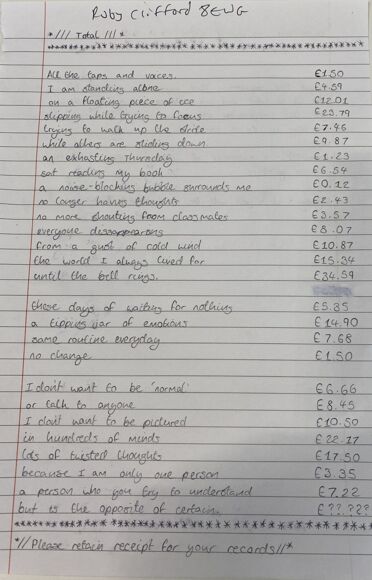 Ruby Clifford 8EWG
*/// Total ///*
All the taps and voices. £1.50
I am standing alone £4.59
on a floating piece of ice £12.01
slipping while trying to focus £23.79
trying to walk up the slide £7.46
while others are sliding down £9.87
an exhasting Thursday £1.23
sat reading my book £6.54
a noise-blocking bubble surrounds me £0.12
no longer having thoughts £2.43
no more shouting from classmates £3.57
everyone £8.07
from a gust of cold wind £10.87
the world I always lived for £15.34
until the bell rings. £34.59
these days of waiting for nothing £5.35
a tipping jar of emotions £14.90
same routine everyday £7.68
no change £1.50
I don't want to be 'normal' £6.66
or talk to anyone £8.45
I don't want to be pictured £10.50
in hundreds of minds £22.17
lots of twisted thoughts £17.50
because I am only one person £3.35
a person who you try to understand £7.22
but is the opposite of certain. £??.???
*//Please retain receipt for your records//*